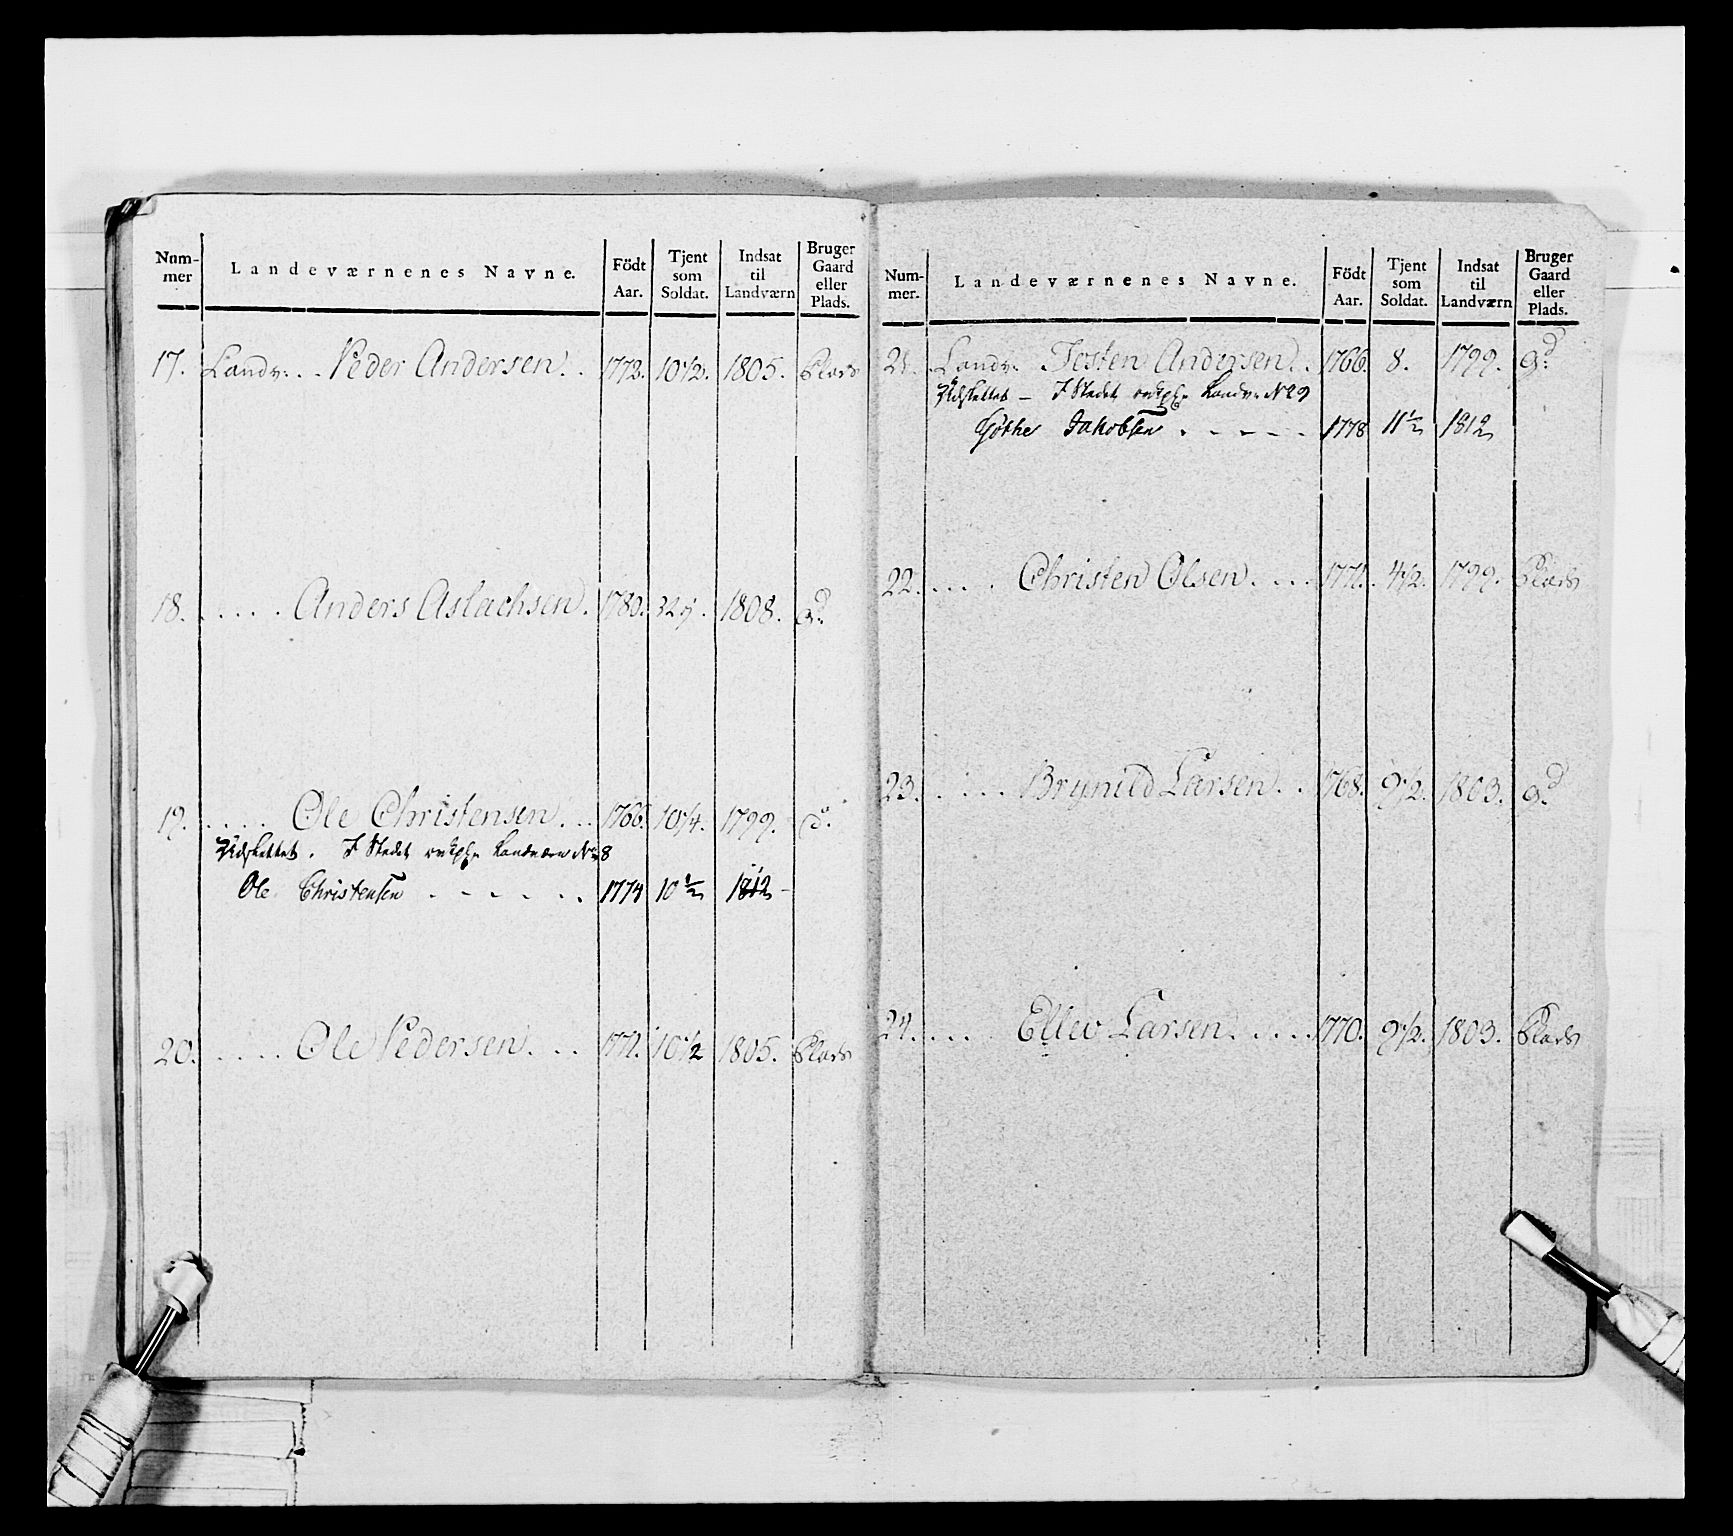 Num-
mer
Landeværnenes Navne.
Födt
Aar.
Tjent
som
Soldat.
Indsat
til
Landværn
Bruger
Gaard
eller
Plads.
17. Landv. Peder Andersen. 1773. 10 1/2. 1805. Plads
18. Anders Aslachsen. 1780. 1808. Gd
19. Ole Christensen. 1766. 10 1/4. 1799.
Udslettet. I Stedet Landværn No 8
Ole Christensen 1774 10 1/2 1812
20. Ole Pedersen. 1771. 10 1/2 1805. Plads
Num-
mer.
Landeværnenes Navne.
Födt
Aar.
Tjent
som
Soldat.
Indsat
til
Landværn
Bruger
Gaard
eller
Plads.
21. Landv. Testen Andersen. 1766. 8. 1799. Gd
Udslettet - I Stedet Landv. No 9
Göthe Jakobsen 1778 11 1/2 1812
22. Christen Olsen. 1771. 4 1/2. 1799. Plads
23. Brynild Larsen. 1768. 9 1/2. 1803. Gd
24. Ellev Larsen. 1770. 9 1/2. 1803. Plads